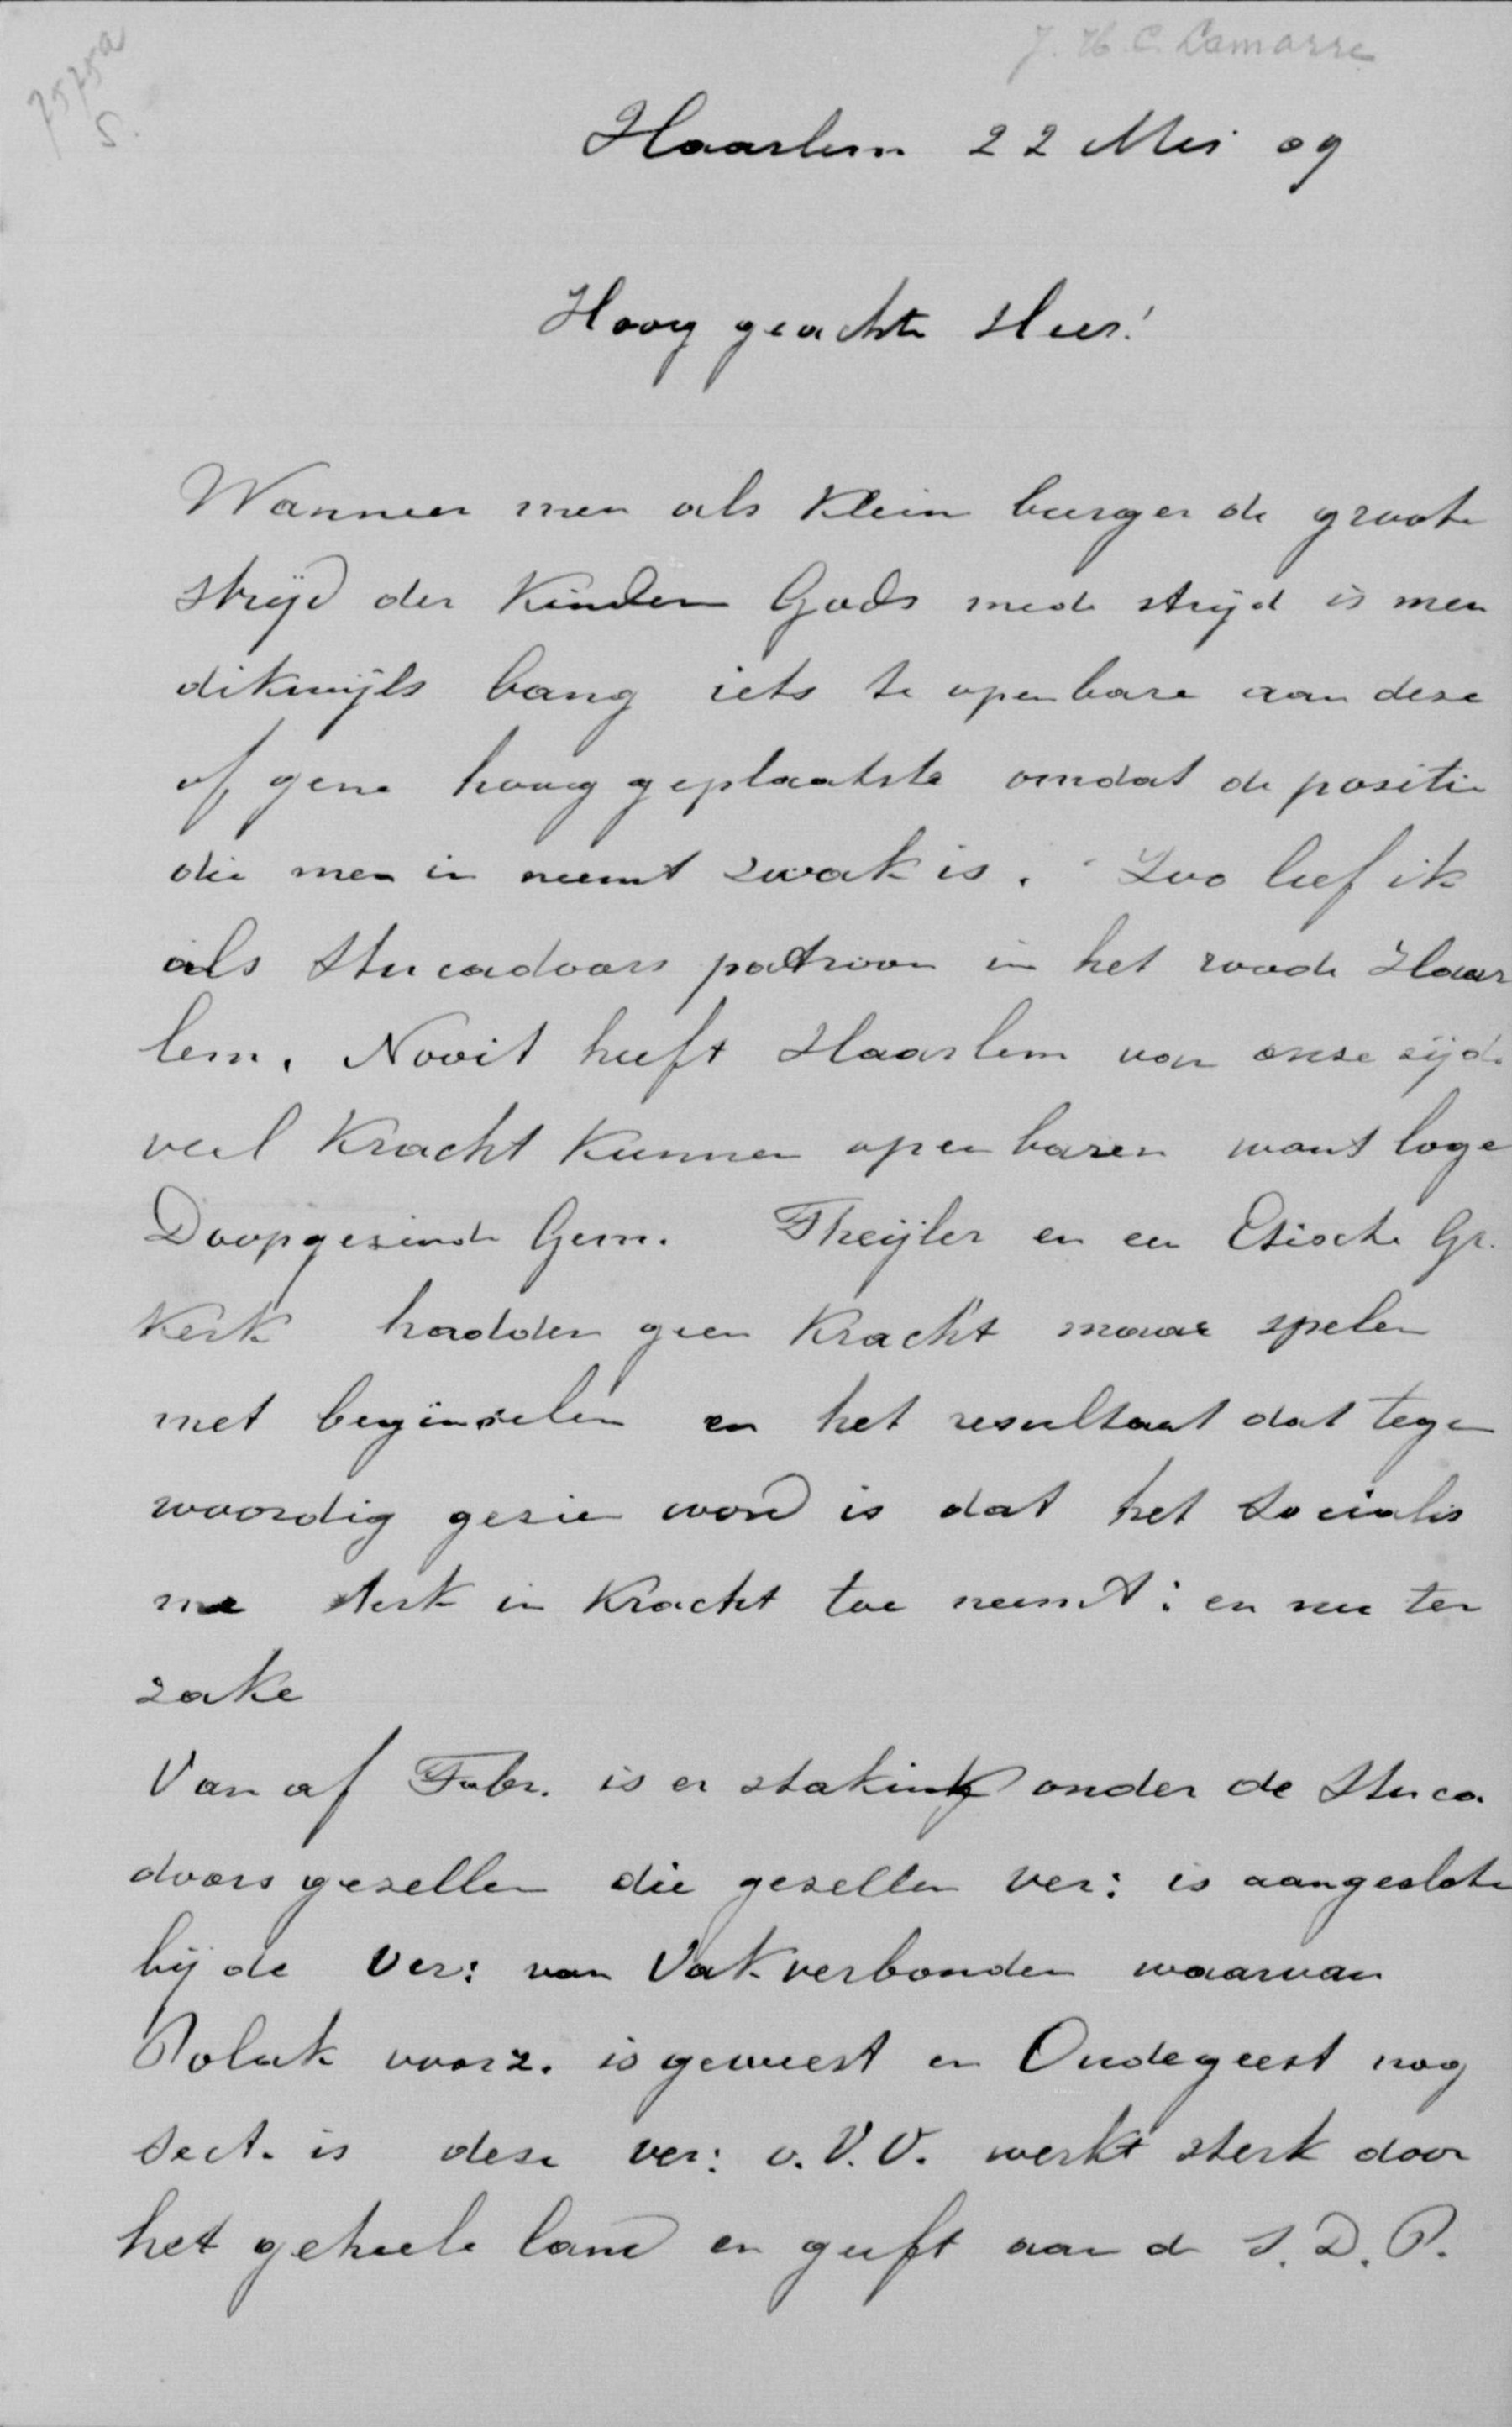 7575a
S.
J. H. C. Lamarre
Haarlem 22 Mei 09
Hoog geachte Heer!
Wanneer men als Klein burger de groote
strijd der Kinderen Gods mede strijd is men
dikwijls bang iets te openbare aan deze
of gene hoog geplaatste omdat de positie
die men in neemt zwak is. Zoo leef ik
als Stucadoors patroon in het roode Haar
lem. Nooit heeft Haarlem van onze zijde
veel Kracht Kunnen openbaren want loge
Doopgezinde Gem. Theijler en een Etische Gr.
Kerk hadden geen Kracht maar spelen
met beginselen en het resultaat dat tegen
woordig gezien word is dat het Socialis
me sterk in Kracht toe neemt: en nu ter
zake
Van af Febr. is er staking onder de Stuca
doors gezellen die gezellen ver: is aangesloten
bij de Ver: van Vakverbonden waarvan
Polak voorz. is geweest en Oudegeest nog
sect. is deze ver: v. V.V. werkt sterk door
het geheele land en geeft aan de S.D.P.